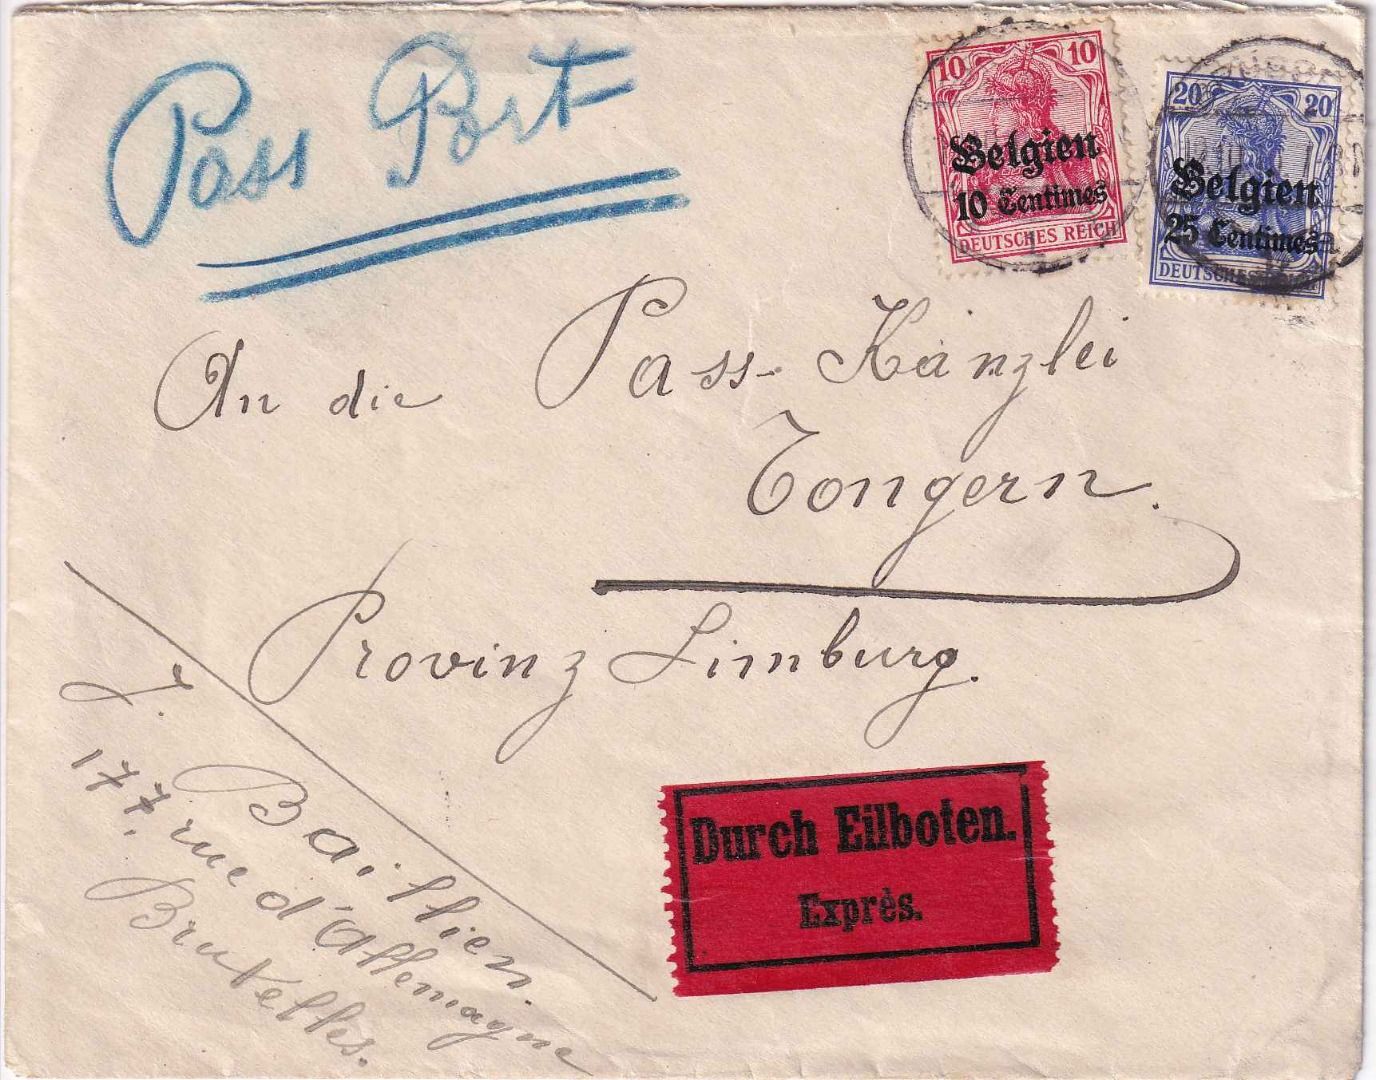 Pass Port
10 10
Belgien
10 Centimes
DEUTSCHES REICH
20 20
Belgien
25 Centimes
DEUTSCHES
An die Pass-Kanzlei
Tongern.
Provinz Limburg.
J. Baillien.
177, rue d'Allemagne
Bruxelles.
Durch Eilboten.
Exprès.